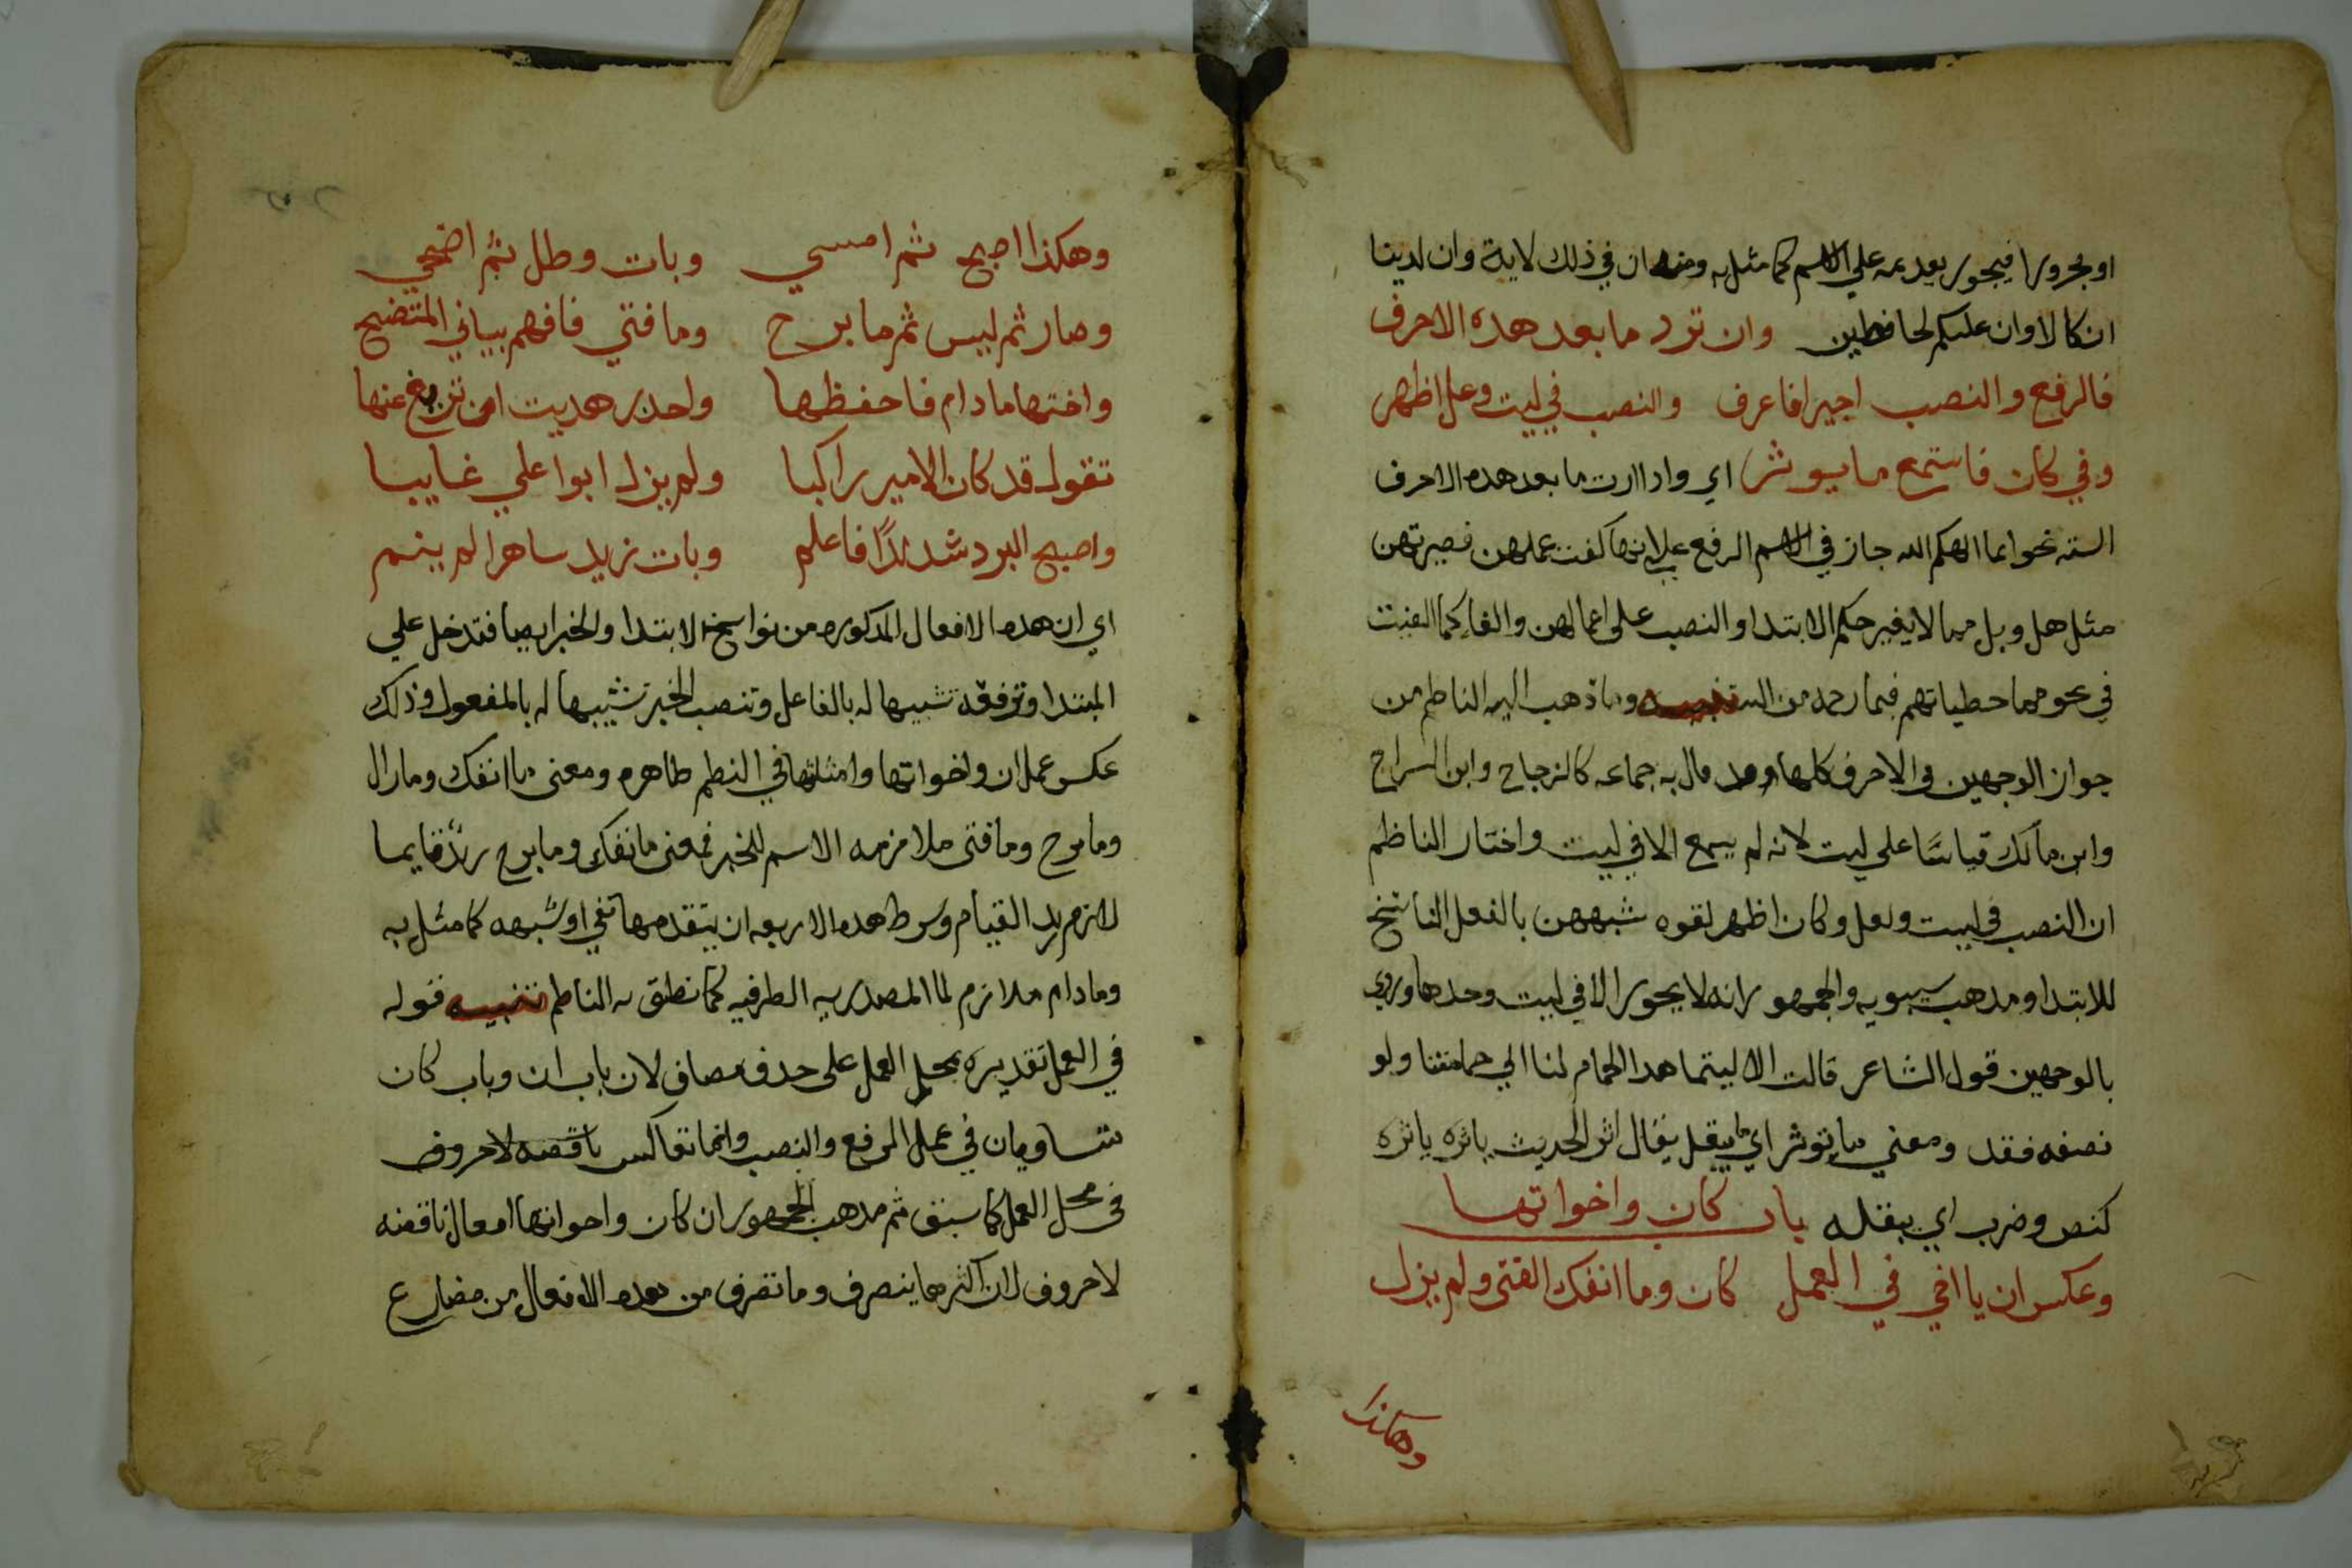 او مجرورا فيجوز تقديمه علي الاسم كما مثل به ومنه ان في ذلك لاية وان لدينا
انكالا وان عليكم لحافظين وان تزد ما بعد هذه الاحرف
فالرفع والنصب اجيزا فاعرف والنصب في ليت وعل اظهر
وفي كان فاستمع ما يوثر اي واذا زدت ما بعد هذه الاحرف
الستة نحو انما الهكم الله جاز في الاسم الرفع علي انها كفت عملهن فصيرتهن
مثل هل وبل مما لا يغير حكم الابتدا والنصب على اعمالهن والغا ما كما الغيت
في نحو مما خطياتهم فبما رحمه من الله تنبيه وما ذهب اليه الناظم من
جواز الوجهين في الاحرف كلها وقد قال به جماعه كالزجاج وابن السراج
وابن مالك قياسًا على ليت لانه لم يسمع الا في ليت واختار الناظم
ان النصب في ليت ولعل وكان اظهر لقوه شبههن بالفعل الناسخ
للابتدا ومذهب سيبويه والجمهور انه لا يجوز الا في ليت وحدها وروي
بالوجهين قول الشاعر قالت الا ليتما هذا الحمام لنا الي حمامتنا ولو
نصفه فقد ومعني ما يوثر اي ما ينقل يقال اثر الحديث ياثره ياثره
كنص وضرب اي ينقله باب كان واخواتها
وعكس ان يا اخي في العمل كان وما انفك الفتى ولم يزل
وهكذا
وهكذا اصبح ثم امسي وبات وظل ثم اضحي
وصار ثم ليس ثم ما برح وما فتي فافهم بياني المتضح
واختها ما دام فاحفظها واحذر هديت ان تزيغ عنها
تقول قد كان الامير راكبا ولم يزل ابوا علي غايبا
واصبح البرد شديدًا فاعلم وبات زيد ساهرا لم ينم
اي ان هذه الافعال المذكوره من نواسخ الابتدا والخبر ايضا فتدخل علي
المبتدا وترفعه تشبيها له بالفاعل وتنصب الخبر تشبيها له بالمفعول وذلك
عكس عمل ان واخواتها وامثلتها في النظم ظاهره ومعنى ما انفك وما زال
وما برح وما فتى ملازمه الاسم للخبر فمعنى ما انفك وما برح زيد قايما
لازم زيد القيام وشرط هذه الاربعه ان يتقدمها نفي او شبهه كما مثل به
وما دام ملازم لما المصدريه الظرفيه كما نطق به الناظم تنبيه قوله
في العمل تقديره بمحل العمل على حذف مضاف لان باب ان وباب كان
متساويان في عمل الرفع والنصب وانما تعاكس ناقصه لا حروف
في محل العمل كما سبق ثم مذهب الجمهور ان كان واخواتها افعال ناقصه
لا حروف لان اكثرها يتصرف وما تصرف من هذه الافعال من مضارع